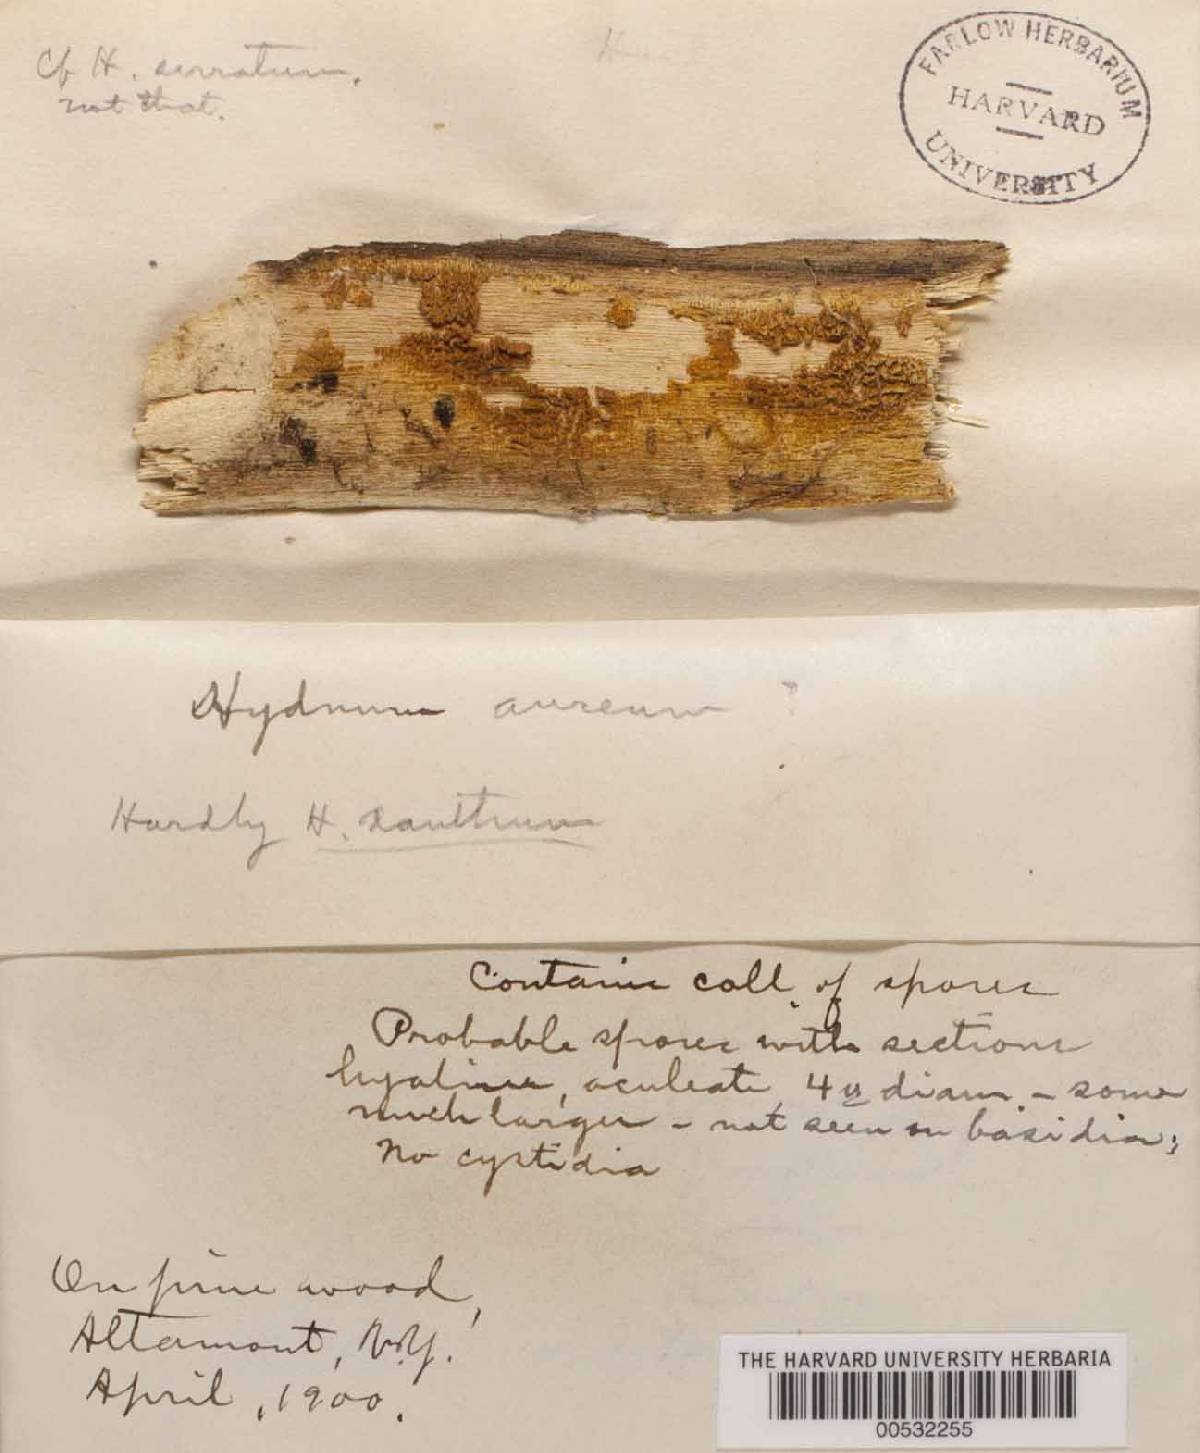 Cf H. serratum.
not that.
FARLOW HERBARIUM
HARVARD
UNIVERSITY
Hydnum aureum ?
Hardly H. xanthum
Contains coll. of spores
Probable spores with sections
hyaline, aculeate, 4 u diam. - some
much larger - not seen on basidia;
No cystidia
On pine wood,
Altamont, N.Y.
April, 1900.
THE HARVARD UNIVERSITY HERBARIA
00532255